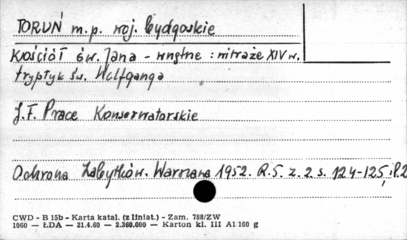 TORUŃ m.p. woj. bydgoskie
Kościół św. Jana - wnętrze : witraże XIV w.
tryptyk św. Wolfganga
J.F. Prace Konserwatorskie
Ochrona Zabytków. Warszawa 1952. R.5. z. 2 s. 124-125, il.2
CWD - B 15b - Karta katal. (z liniat.) - Zam. 788/ZW
1060 — ŁDA — 21.4.60 — 2.360.000 — Karton kl. III A1 160 g